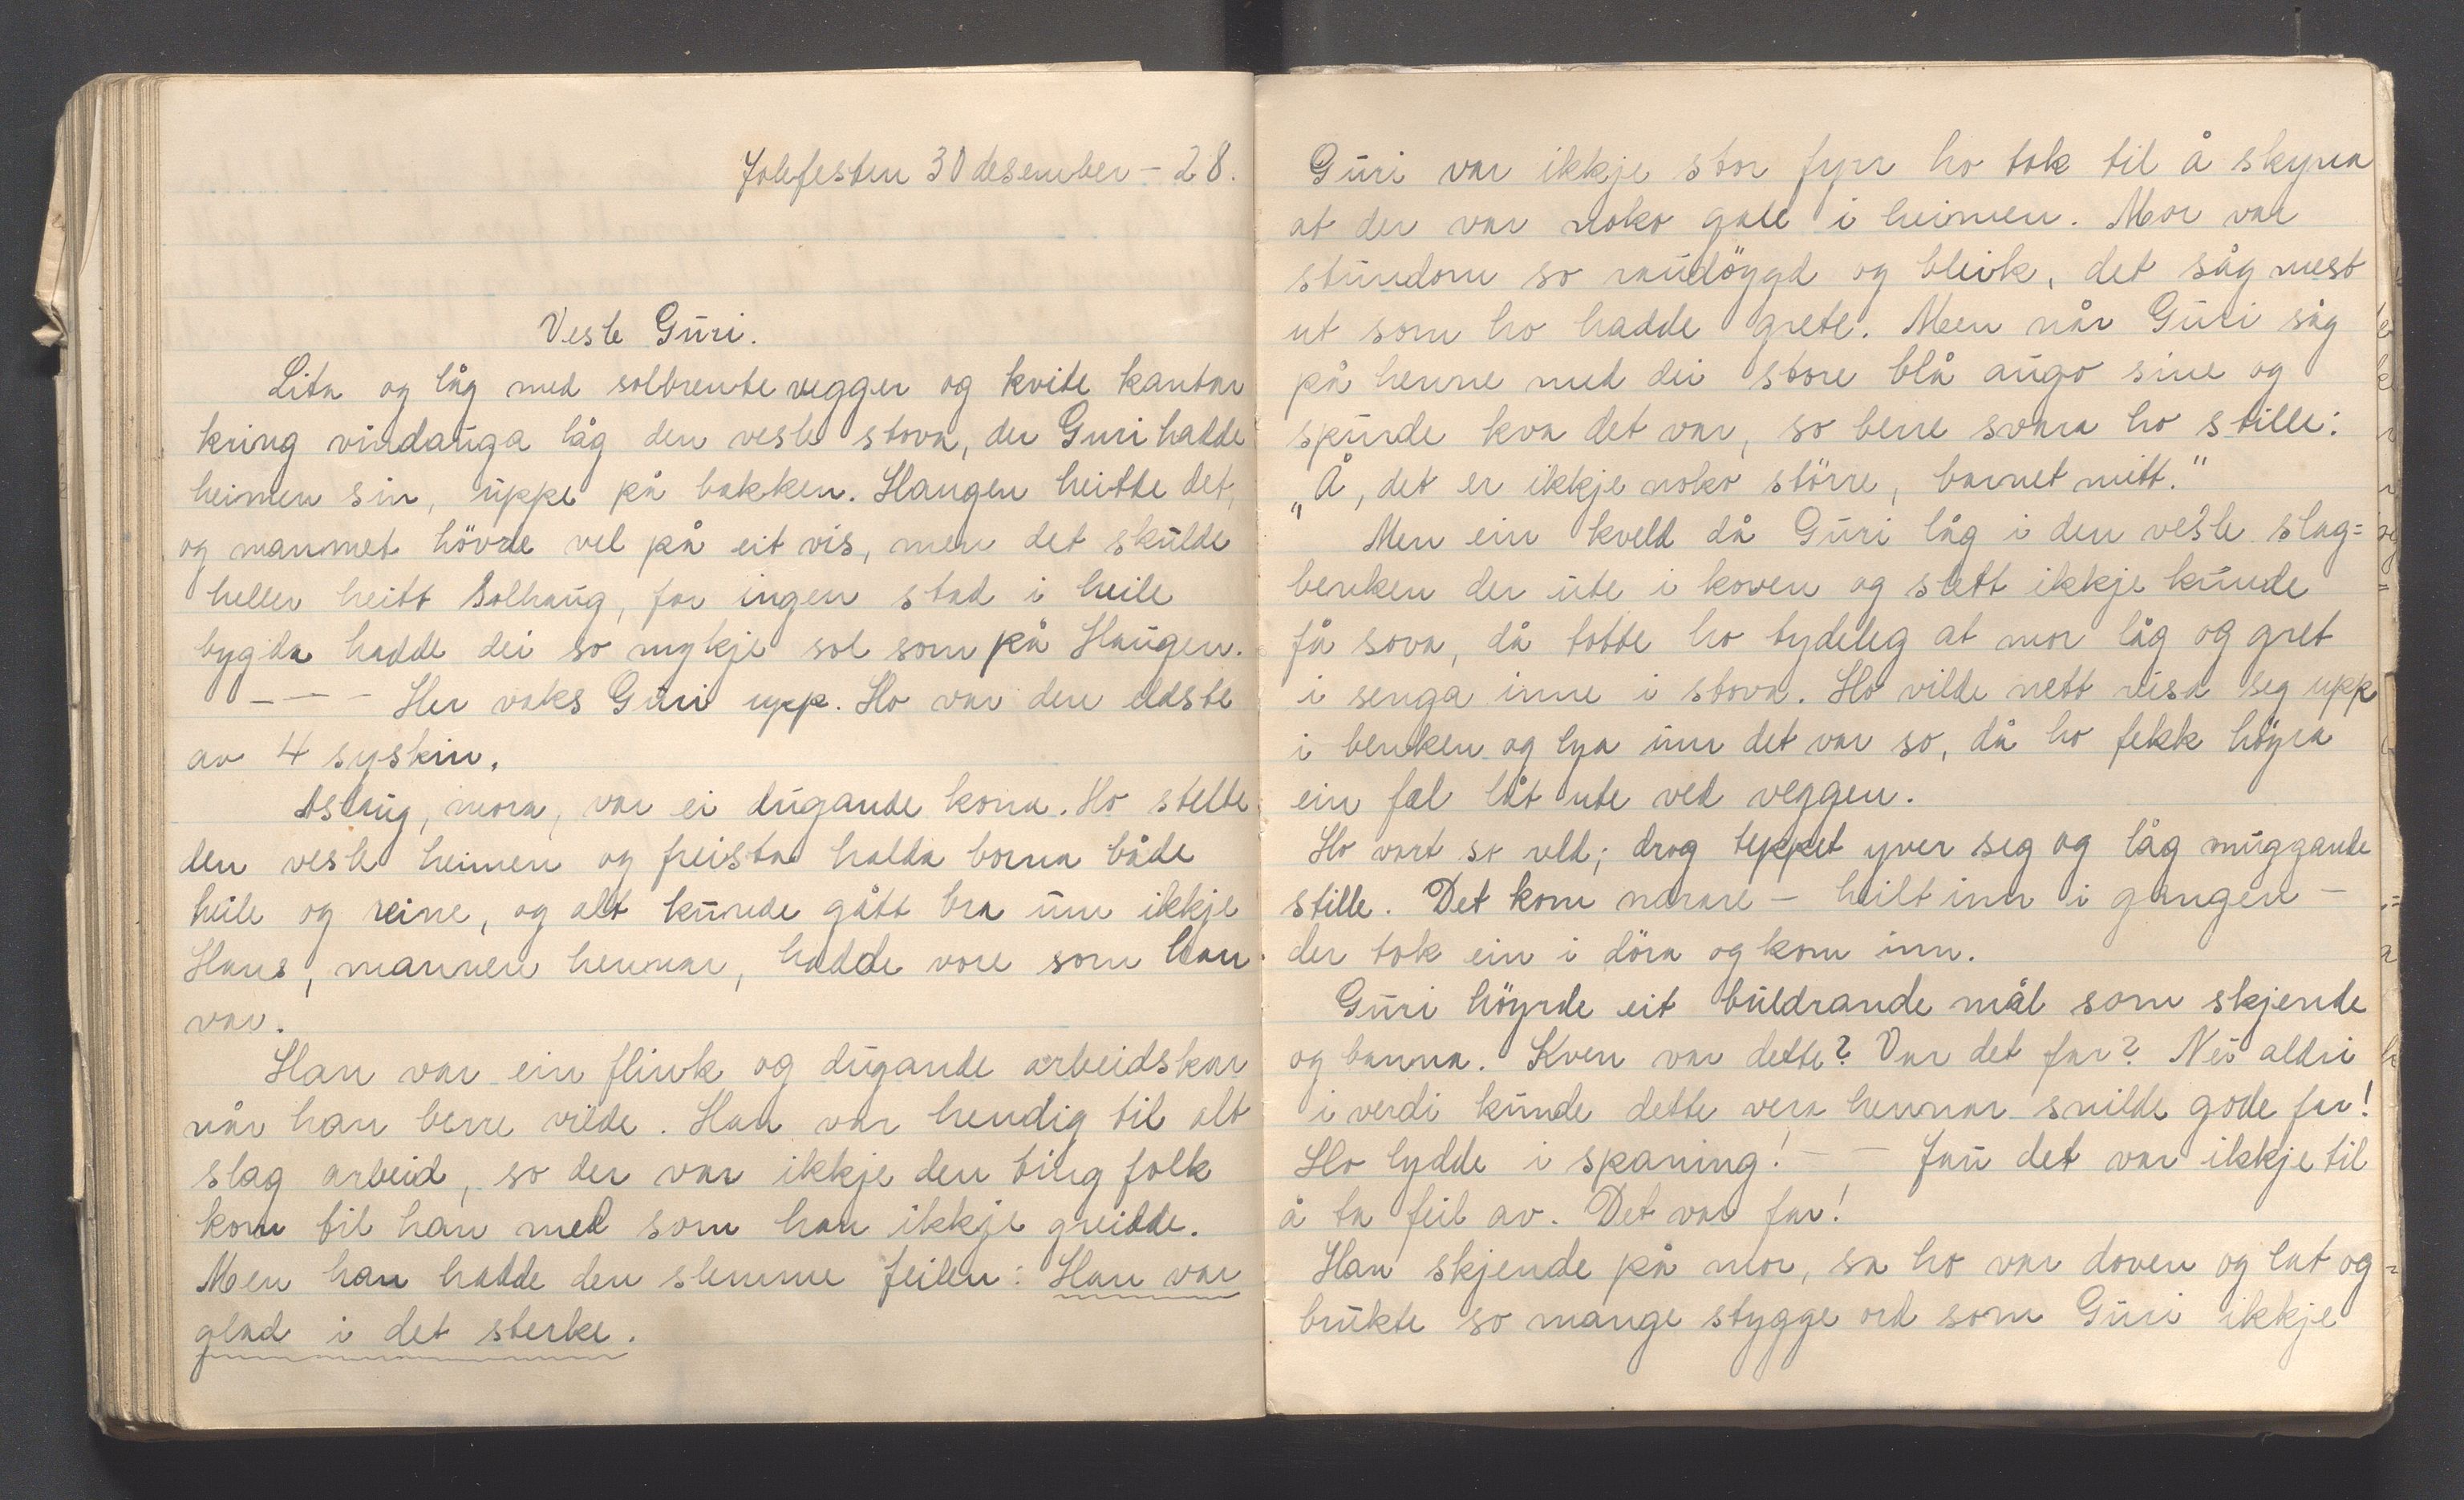 Jolefesten 30 desember - 28.
Vesle Guri.
Lita og låg med solbrente vegger og kvite kantar
kring vindauga låg den vesle stova, der Guri hadde
heimen sin, uppe på bakken. Haugen heitte det,
og namnet hövde vel på eit vis, men det skulde
heller heitt Solhaug, for ingen stad i heile
bygda hadde dei so mykje sol som på Haugen.
- - - Her vaks Guri upp. Ho var den eldste
av 4 syskin.
Aslaug, mora, var ei dugande kona. Ho stelte
den vesle heimen og freista halda borna både
heile og reine, og alt kunde gått bra um ikkje
Hans, mannen hennar, hadde vore som han
var.
Han var ein flink og dugande arbeidskar
når han berre vilde. Han var hendig til alt
slag arbeid, so der var ikkje den ting folk
kom til han med som han ikkje greidde.
Men han hadde den slemme feilen: Han var
glad i det sterke.
Guri var ikkje stor fyrr ho tok til å skyna
at der var noko gale i heimen. Mor var
stundom so raudöygd og bleik, det såg mest
ut som ho hadde grete. Men når Guri såg
på henne med dei store blå augo sine og
spurde kva det var, so berre svara ho stille:
"Å, det er ikkje noko större, barnet mitt."
Men ein kveld då Guri låg i den vesle slag=
benken der ute i koven og slett ikkje kunde
få sova, då totte ho tydeleg at mor låg og gret
i senga inne i stova. Ho vilde nett reisa seg upp
i benken og lya um det var so, då ho fekk höyra
ein fæl låt ute ved veggen.
Ho vart so redd; drog teppet yver seg og låg muggande
stille. Det kom nærare - heilt inn i gangen -
der tok ein i döra og kom inn.
Guri höyrde eit buldrande mål som skjende
og banna. Kven var dette? Var det far? Nei aldri
i verdi kunde dette vera hennar snilde gode far!
Ho lydde i spaning! - - Jau det var ikkje til
å ta feil av. Det var far!
Han skjende på mor, sa ho var doven og lat og
brukte so mange stygge ord som Guri ikkje